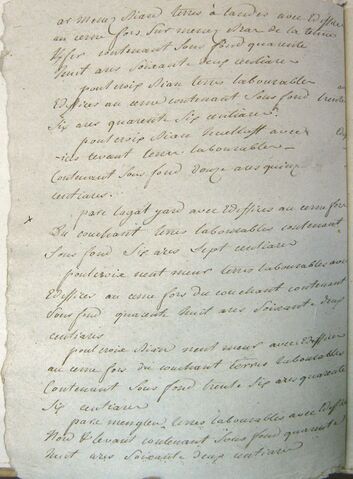 ar menez Bian terres à landes avec Edifices
au cerne fors Sur menez Bras de la tenue
contenant Sous fond quarente
huit ares Soixante deux centiares
poulcroix Bian terres labourables
Edifices au cerne contenant Sous fond trente
Six ares quarente Six centiares
poulcroix Bian avec
levant terres labourables
Contenant Sous fond douze ares quinze
centiares
parc lagat yard avec Edifices au cerne fors
Du couchant terres labourables contenant
Sous fond Six ares Sept centiares
poulcroix neut meur terres labourables avec
Edifices au cerne fors du couchant contenant
Sous fond quarente huit ares Soixante deux
centiares
poulcroix Bian neut meur avec Edifices
au cerne fors du couchant terres labourables
Contenant Sous fond trente Six ares quarente
Six centiares
parc menguen terres labourables avec Edifices
Nord & levant contenant Sous fond quarente
huit ares Soixante deux centiares